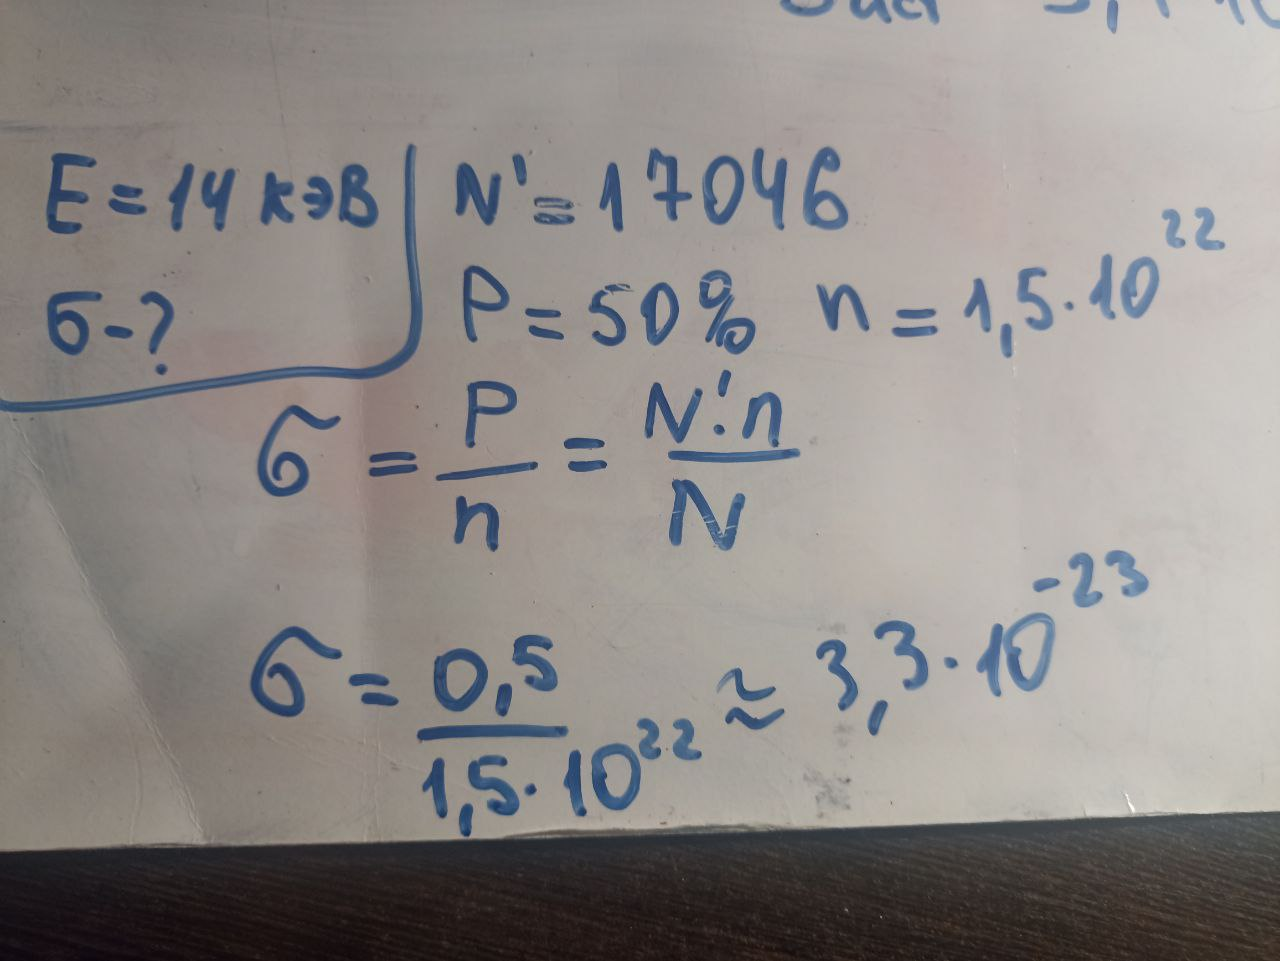 E = 14 кэВ
σ - ?
N' = 17046
P = 50% n = 1,5 · 10²²
σ = P/n = N'·n/N
σ = 0,5/1,5·10²² ≈ 3,3 · 10⁻²³